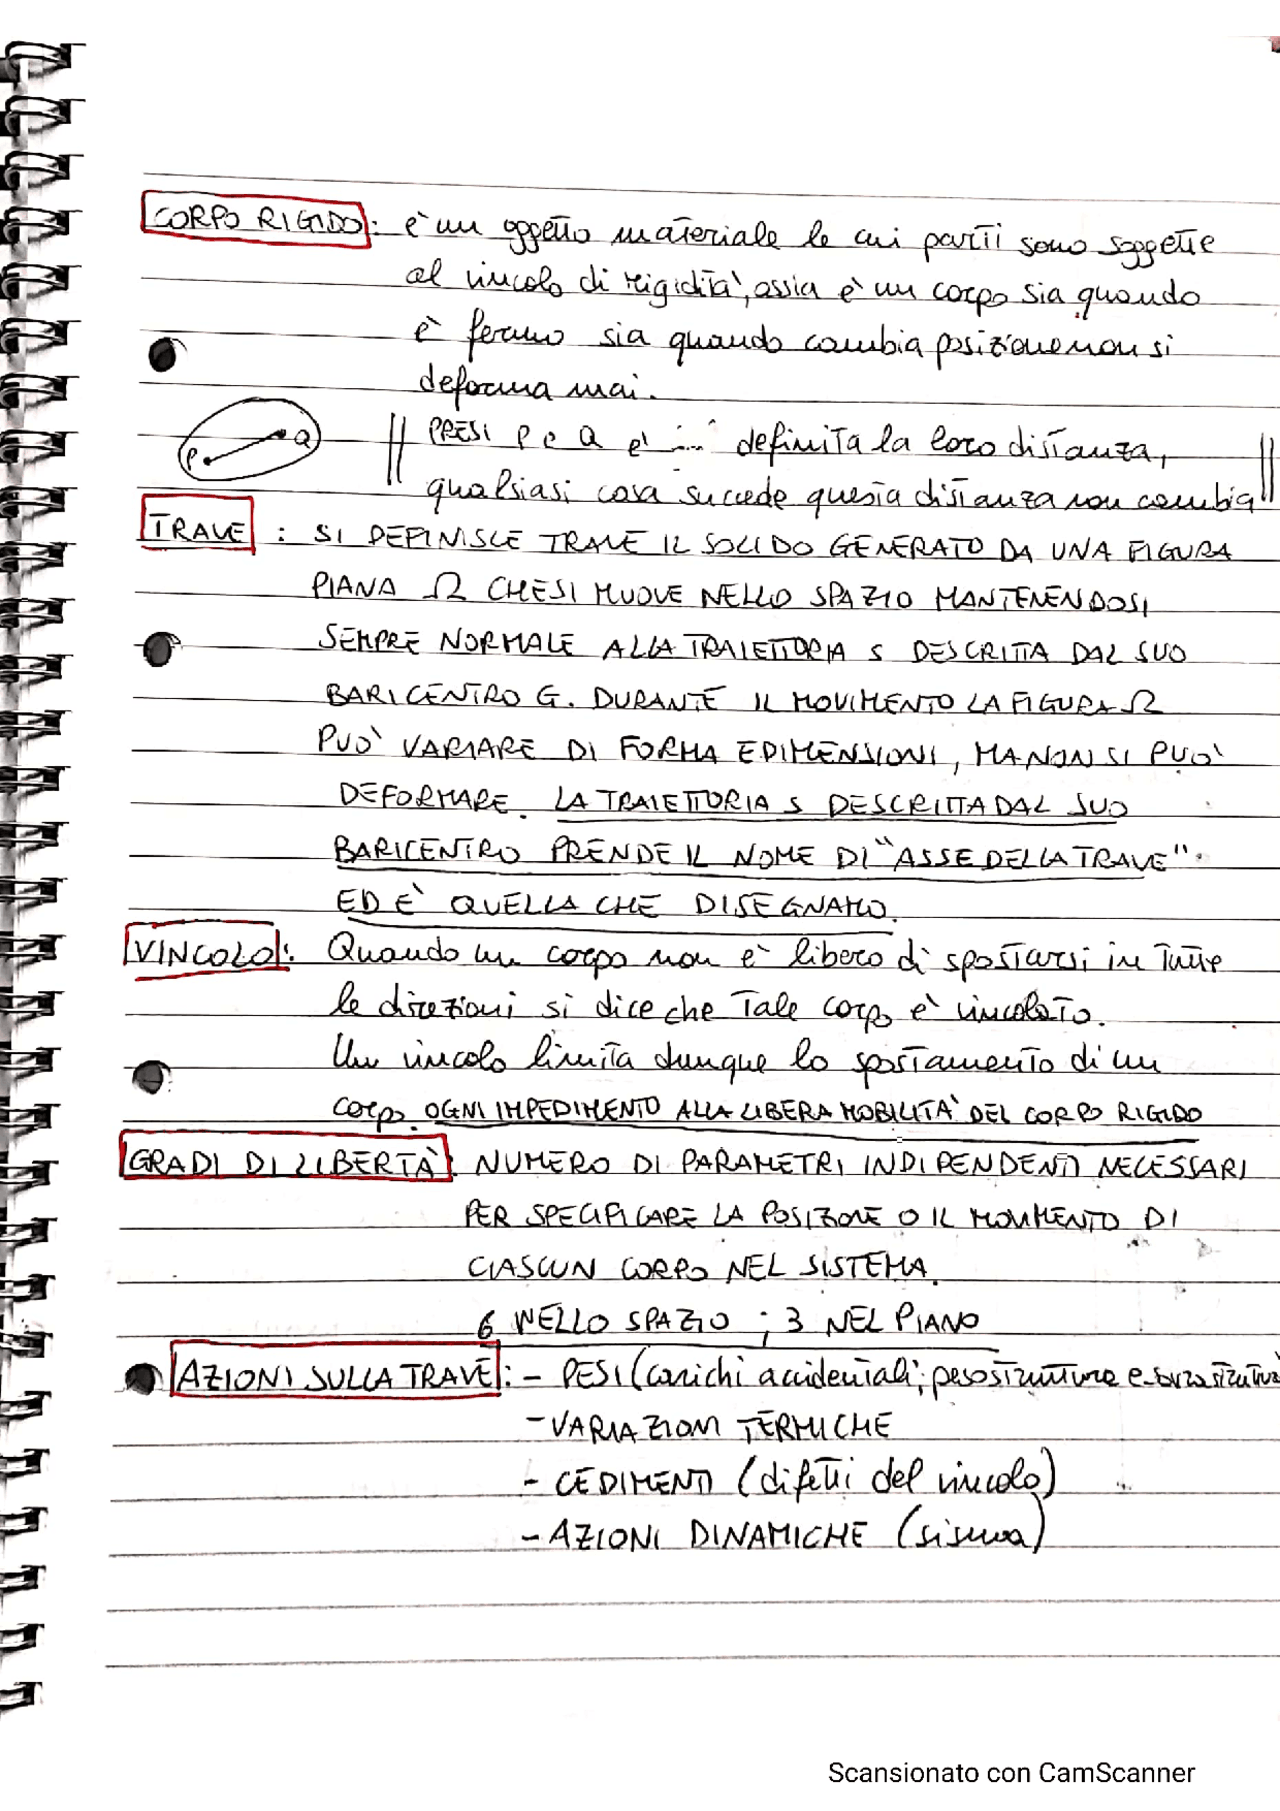 CORPO RIGIDO: è un oggetto materiale le cui parti sono soggette
al vincolo di rigidità, ossia è un corpo sia quando
è fermo sia quando cambia posizione non si
deforma mai.
P Q
PRESI P e Q e' definita la loro distanza,
qualsiasi cosa succede questa distanza non cambia
TRAVE : SI DEFINISCE TRAVE IL SOLIDO GENERATO DA UNA FIGURA
PIANA Ω CHE SI MUOVE NELLO SPAZIO MANTENENDOSI
SEMPRE NORMALE ALLA TRAIETTORIA S DESCRITTA DAL SUO
BARICENTRO G. DURANTE IL MOVIMENTO LA FIGURA Ω
PUO' VARIARE DI FORMA E DIMENSIONI, MA NON SI PUO'
DEFORMARE. LA TRAIETTORIA S DESCRITTA DAL SUO
BARICENTRO PRENDE IL NOME DI "ASSE DELLA TRAVE".
ED È QUELLA CHE DISEGNAMO.
VINCOLO: Quando un corpo non è libero di spostarsi in tutte
le direzioni si dice che tale corpo è vincolato.
Un vincolo limita dunque lo spostamento di un
corpo. OGNI IMPEDIMENTO ALLA LIBERA MOBILITA' DEL CORPO RIGIDO
GRADI DI LIBERTÀ: NUMERO DI PARAMETRI INDIPENDENTI NECESSARI
PER SPECIFICARE LA POSIZIONE O IL MOVIMENTO DI
CIASCUN CORPO NEL SISTEMA.
6 NELLO SPAZIO ; 3 NEL PIANO
AZIONI SULLA TRAVE: - PESI (carichi accidentali; peso struttura e
- VARIAZIONI TERMICHE
- CEDIMENTI (difetti del vincolo)
- AZIONI DINAMICHE (sisma)
Scansionato con CamScanner